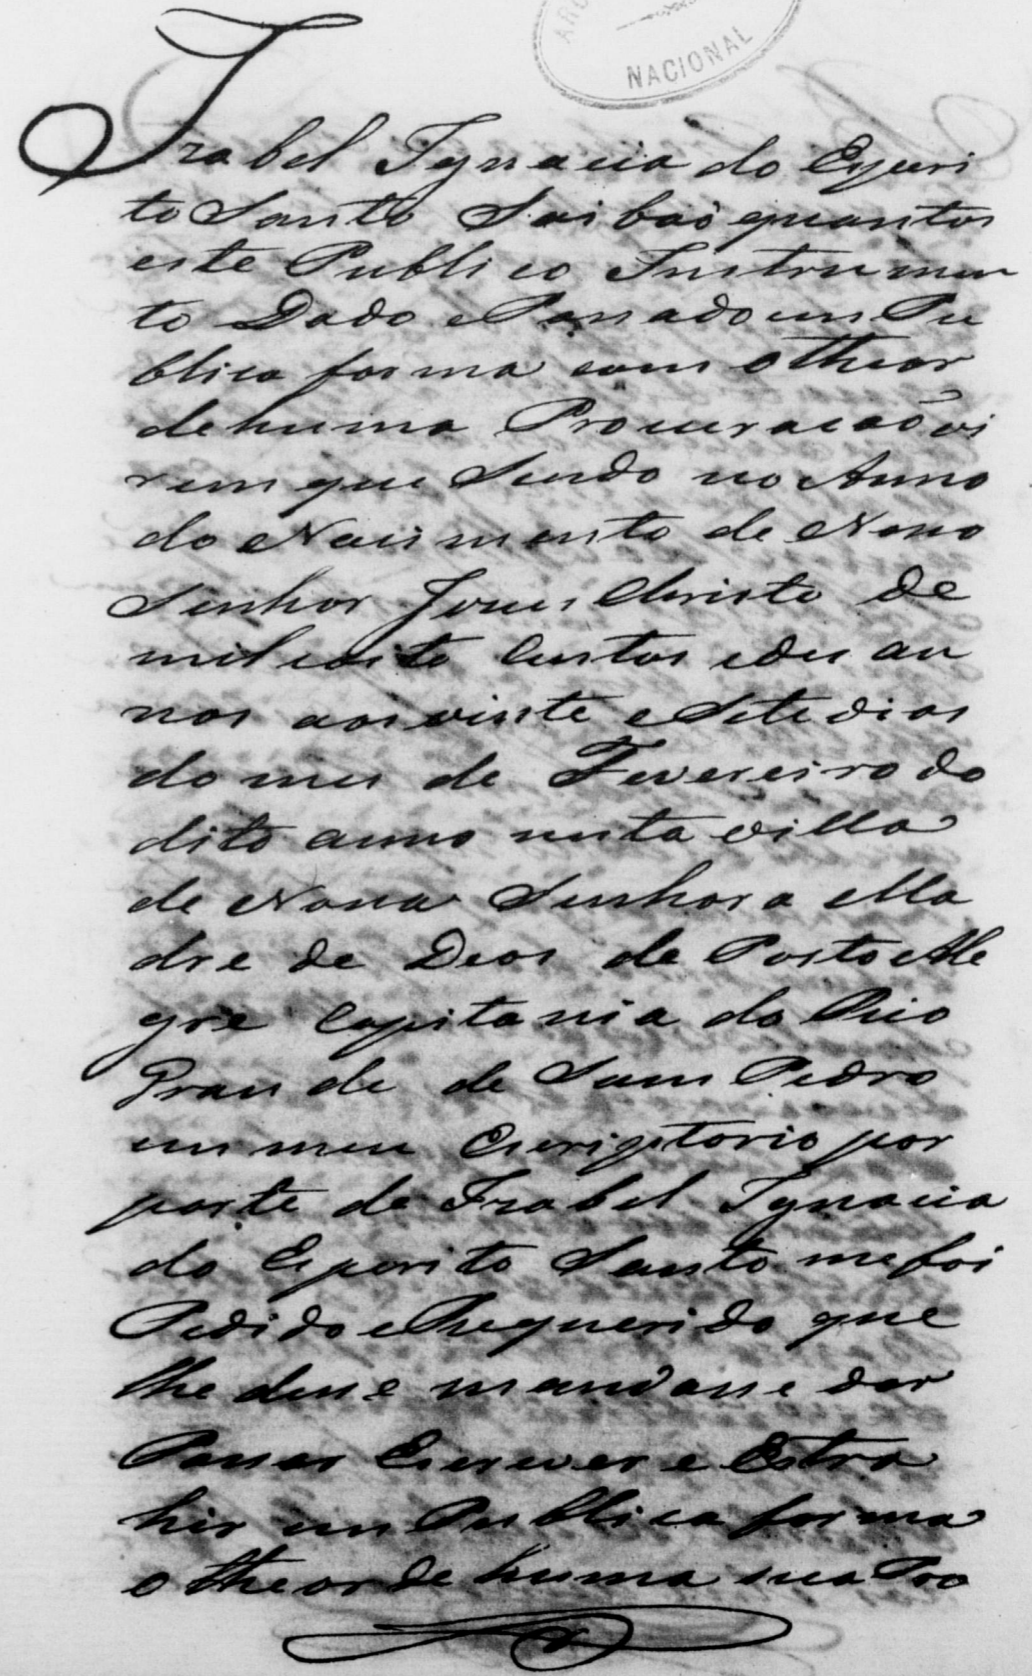 ARQ
NACIONAL
Izabel Ignacia do Espiri
to Santo Saibaõ quantos
este Publico Instrumen
to Dado e Passado em Pu
blica forma com o theor
de huma Procuracaõ vi
rem que Sendo no Anno
do Nascimento de Nosso
Senhor Jesus Christo de
mil e oito Centos e des an
nos aos vinte e Sete dias
do mes de Fevereiro do
dito anno nesta villa
de Nossa Senhora Ma
dre de Deos de Porto Ale
gre Capitania do Rio
Grande de Sam Pedro
em meu Escriptorio por
parte de Izabel Ignacia
do Esperito Santo me foi
Pedido e Requerido que
lhe desse mandasse dar
Passar Escrever e Estra
hir em Publica forma
o theor de huma sua Pro